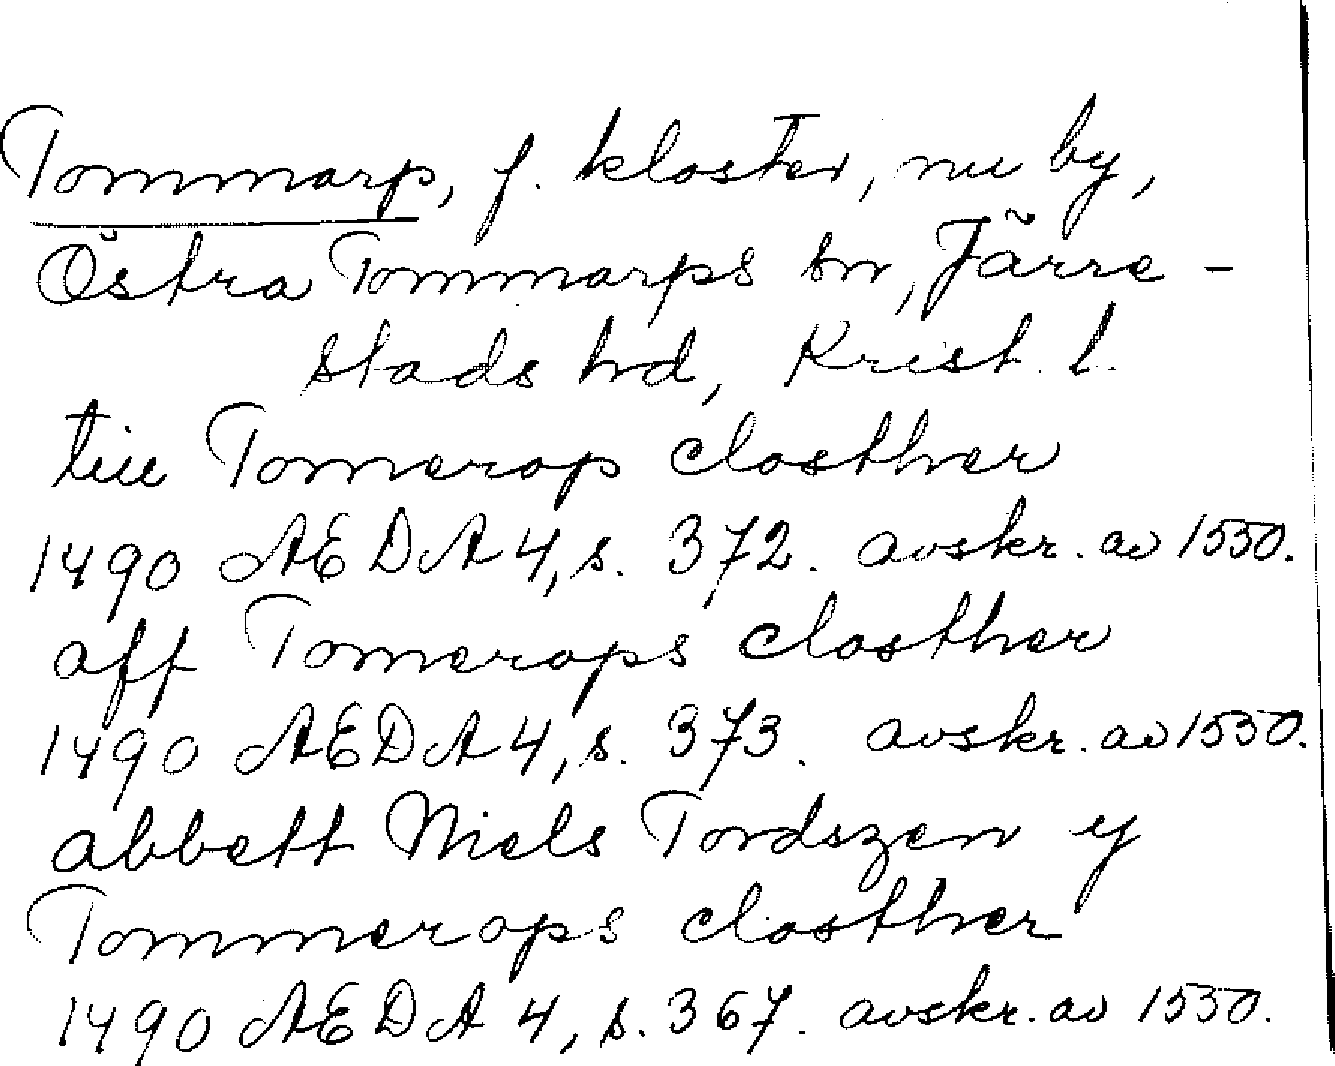 Tommarp, f. kloster, nu by,
Östra Tommarps sn, Järre-
stads hd, Krist. l.
till Tomerop closther
1490 ÆDA 4, s. 372. avskr. av 1550.
aff Tomerops closther
1490 ÆDA 4, s. 373. avskr. av 1550.
abbett Niels Tordszen y
Tommerops closther
1490 ÆDA 4, s. 367. avskr. av 1550.